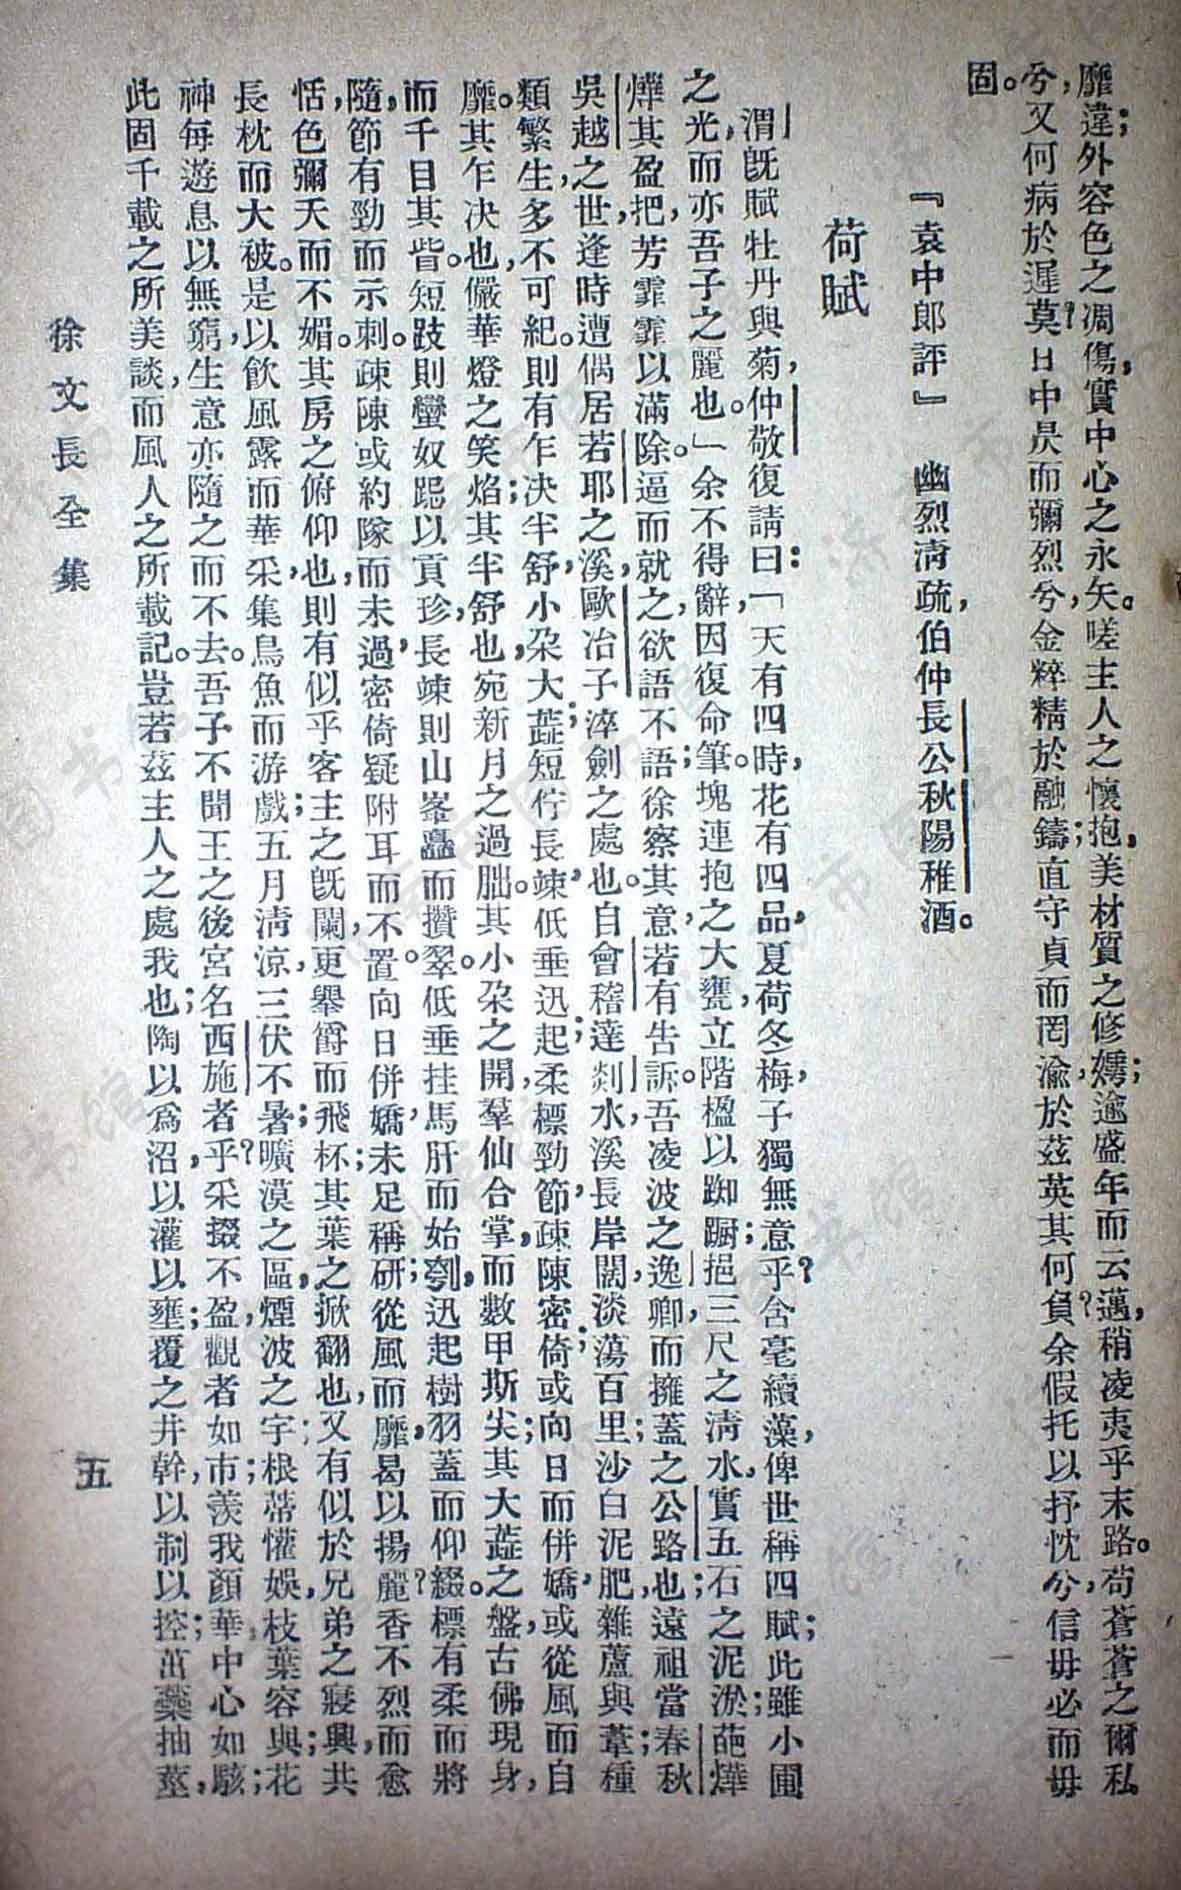 靡違；外容色之凋傷，實中心之永矢。嗟主人之懷抱，美材質之修嫮；逾盛年而云邁，稍凌夷乎末路。苟蒼蒼之爾私
兮，又何病於遲莫？日中昃而彌烈兮，金粹精於融鑄；直守貞而罔渝，於茲英其何負？余假托以抒忱兮，信毋必而毋
固。
『袁中郎評』　幽烈淸疏，伯仲長公秋陽稚酒。
荷賦
渭旣賦牡丹與菊，仲敬復請曰：「天有四時，花有四品，夏荷冬梅，子獨無意乎？含毫續藻，俾世稱四賦；此雖小圃
之光，而亦吾子之麗也。」余不得辭，因復命筆。塊連抱之大甕，立階楹以踟躕；挹三尺之淸水，實五石之泥淤；葩燁
燁其盈把，芳霏霏以滿除。逼而就之，欲語不語，徐察其意，若有告訴。吾凌波之逸卿，而擁蓋之公路也；遠祖當春秋
吳越之世，逢時遭偶，居若耶之溪，歐冶子淬劍之處也。自會稽達剡，水溪長岸闊，淡蕩百里，沙白泥肥，雜蘆與葦；種
類繁生，多不可紀。則有乍决半舒，小朶大蕋；短佇長竦，低垂迅起；柔標勁節，疎陳密倚；或向日而併嬌，或從風而自
靡。其乍决也，儼華燈之笑焰；其半舒也，宛新月之過朏。其小朶之開，羣仙合掌，而數甲斯尖；其大蕋之盤，古佛現身，
而千目其眥。短跂則蠻奴跽以貢珍，長竦則山峯矗而攢翠。低垂挂馬肝而始刳，迅起樹羽蓋而仰綴。標有柔而將
隨，節有勁而示刺。疎陳或約隊而未過，密倚疑附耳而不置。向日併嬌，未足稱研；從風而靡，曷以揚麗？香不烈而愈
恬，色彌天而不媚。其房之俯仰也，則有似乎客主之旣闌，更舉爵而飛杯；其葉之掀翻也，又有似於兄弟之寢興，共
長枕而大被。是以飮風露而華采，集鳥魚而游戲；五月淸涼，三伏不暑；曠漠之區，煙波之宇；根蔕懽娛，枝葉容與；花
神每遊息以無窮，生意亦隨之而不去。吾子不聞王之後宮名西施者乎？采掇不盈，觀者如市；羨我顏華，中心如駭；
此固千載之所美談，而風人之所載記。豈若茲主人之處我也；陶以爲沼，以灌以壅；覆之井幹，以制以控；茁蘂抽莖，
徐文長全集
五